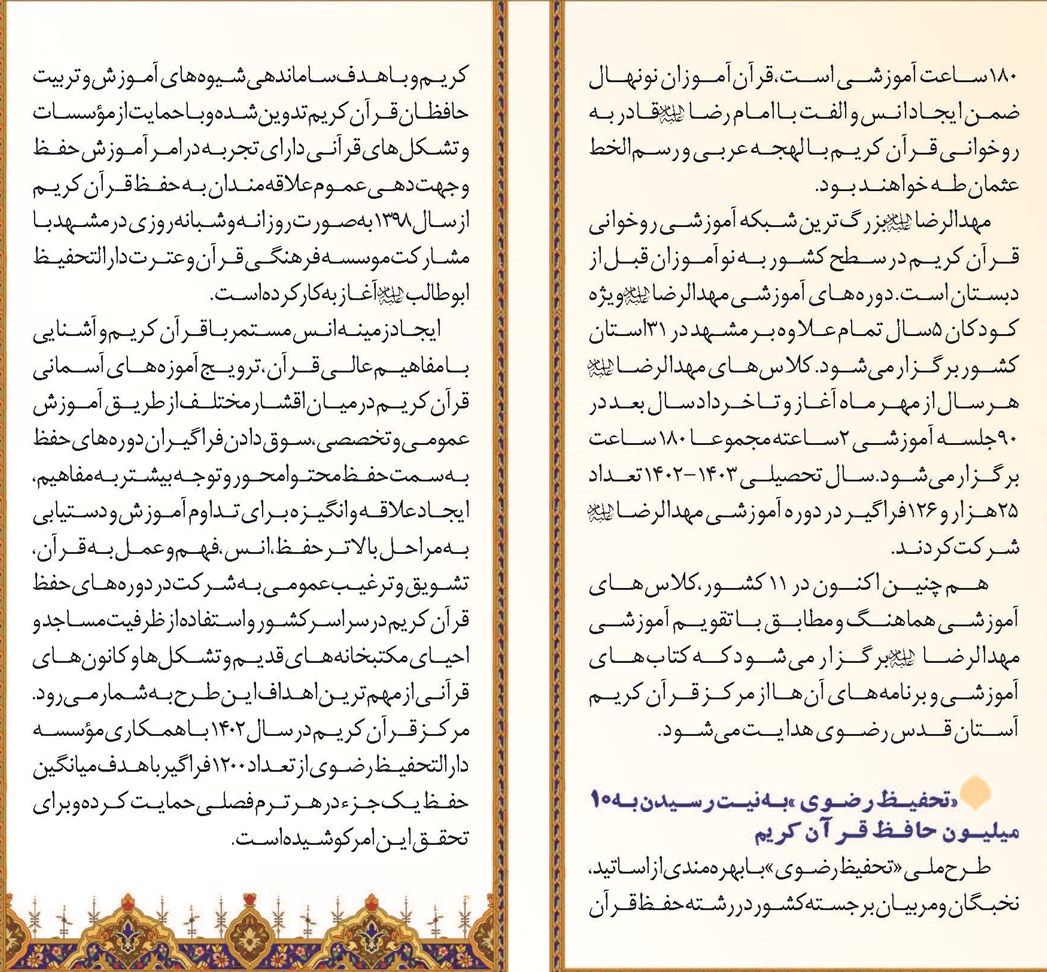 ۱۸۰ساعت آموزشی است،قرآن‌آموزان نونهال
ضمن ایجاد انس و الفت با امام رضا علیه‌السلام قادر به
روخوانی قرآن کریم با لهجه عربی و رسم‌الخط
عثمان طه خواهند بود.
مهدالرضا علیه‌السلام بزرگ‌ترین شبکه آموزشی روخوانی
قرآن کریم در سطح کشور به نوآموزان قبل از
دبستان است. دوره‌های آموزشی مهدالرضا علیه‌السلام ویژه
کودکان ۵سال تمام علاوه بر مشهد در ۳۱استان
کشور برگزار می‌شود. کلاس‌های مهدالرضا علیه‌السلام
هر سال از مهر ماه آغاز و تا خرداد سال بعد در
۹۰جلسه آموزشی ۲ساعته مجموعا ۱۸۰ساعت
برگزار می‌شود.سال تحصیلی ۱۴۰۳-۱۴۰۲تعداد
۲۵هزار و ۱۲۶فراگیر در دوره آموزشی مهدالرضا علیه‌السلام
شرکت کردند.
هم‌چنین اکنون در ۱۱ کشور،کلاس‌های
آموزشی هماهنگ و مطابق با تقویم آموزشی
مهدالرضا علیه‌السلام برگزار می‌شود که کتاب‌های
آموزشی و برنامه‌های آن‌ها از مرکز قرآن کریم
آستان قدس رضوی هدایت می‌شود.
«تحفیظ رضوی »به نیت رسیدن به۱۰
میلیون حافظ قرآن کریم
طرح ملی «تحفیظ رضوی »با بهره مندی از اساتید،
نخبگان و مربیان برجسته کشور در رشته حفظ قرآن
کریم و با هدف ساماندهی شیوه‌های آموزش و تربیت
حافظان قرآن کریم تدوین شده و با حمایت از مؤسسات
و تشکل‌های قرآنی دارای تجربه در امر آموزش حفظ
و جهت‌دهی عموم علاقه‌مندان به حفظ قرآن کریم
از سال ۱۳۹۸ به صورت روزانه و شبانه روزی در مشهد با
مشارکت موسسه فرهنگی قرآن و عترت دارالتحفیظ
ابوطالب علیه‌السلام آغاز به کار کرده است.
ایجاد زمینه انس مستمر با قرآن کریم و آشنایی
با مفاهیم عالی قرآن، ترویج آموزه‌های آسمانی
قرآن کریم در میان اقشار مختلف از طریق آموزش
عمومی و تخصصی،سوق دادن فراگیران دوره‌های حفظ
به سمت حفظ محتوا محور و توجه بیشتر به مفاهیم،
ایجاد علاقه و انگیزه برای تداوم آموزش و دستیابی
به مراحل بالاتر حفظ،انس، فهم و عمل به قرآن،
تشویق و ترغیب عمومی به شرکت در دوره‌های حفظ
قرآن کریم در سراسر کشور و استفاده از ظرفیت مساجد و
احیای مکتبخانه‌های قدیم و تشکل‌ها و کانون‌های
قرآنی از مهم‌ترین اهداف این طرح به شمار می‌رود.
مرکز قرآن کریم در سال ۱۴۰۲ با همکاری مؤسسه
دارالتحفیظ رضوی از تعداد ۱۲۰۰فراگیر با هدف میانگین
حفظ یک جزء در هر ترم فصلی حمایت کرده و برای
تحقق این امر کوشیده است.